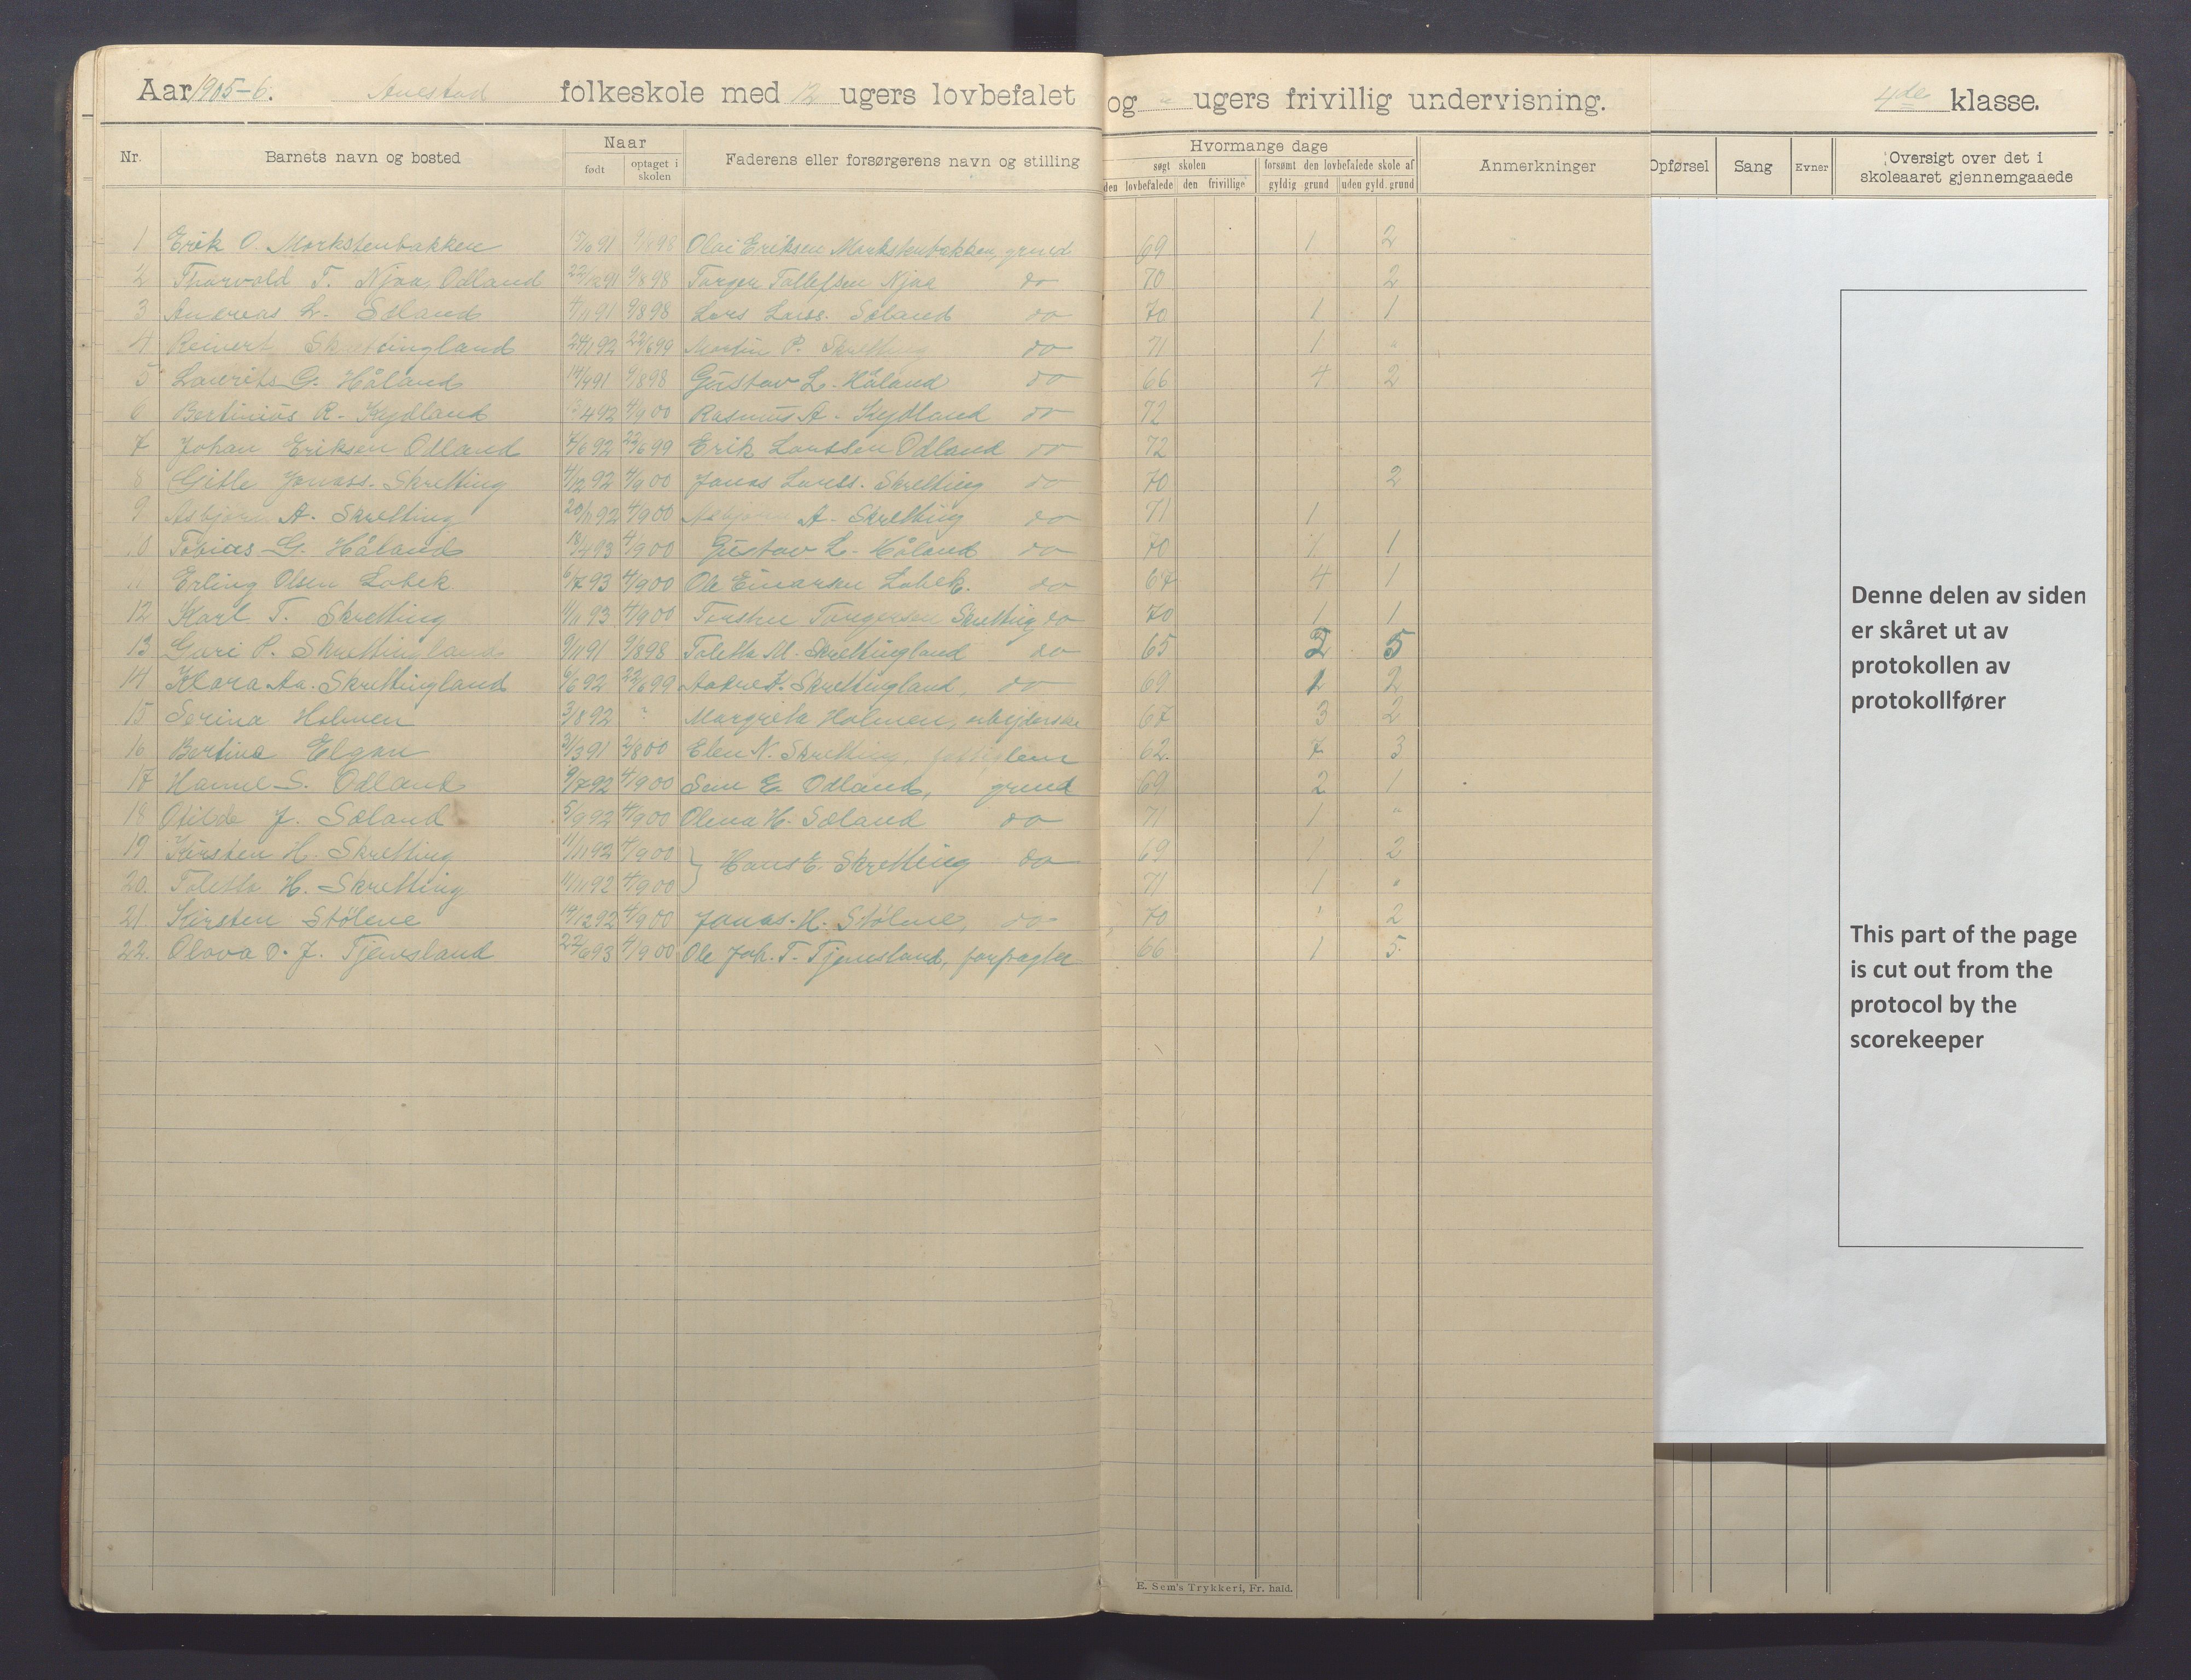 Aar 1905-6. Auestad folkeskole med 12 ugers lovbefalet og " ugers frivillig undervisning. 4de klasse.
Nr. Barnets navn og bosted Naar født optaget i skolen Faderens eller forsørgerens navn og stilling Hvormange dage søgt skolen den lovbefalede den frivillige forsømt den lovbefalede skole af gyldig grund uden gyld. grund Anmerkninger Opførsel Sang Evner Oversigt over det i skoleaaret gjennemgaaede
1 Erik O. Morkstenbakken Olai Eriksen Morkstenbakken, grmd 69 1 2
2 Thorvald T. Njaa, Odland 9/8 98 Torger Tollefsen Njaa do 70 2
3 Andreas L. Söland 9/8 98 Lars Larss. Söland do 70 1 1
4 Reinert Skrettingland 24/1 92 22/6 99 Martin P. Skretting do 71 1 "
5 Laurits G. Håland 14/4 91 9/8 98 Gustav L. Håland do 66 4 2
6 Bertinius R. Kydland 4 92 4/9 00 Rasmus A. Kydland do 72
7 Johan Eriksen Odland 4/6 92 22/6 99 Erik Larssen Odland do 72
8 Gitle Jonass. Skretting 4/12 92 4/9 00 Jonas Larss. Skretting do 70 2
9 Asbjørn A. Skretting 20/11 92 4/9 00 Asbjørn A. Skretting do 71 1
10 Tobias G. Håland 18/4 93 4/9 00 Gustav L. Håland do 70 1 1
11 Erling Olsen Lobek 6/7 93 4/9 00 Ole Einarsen Lobek. do 67 4 1
12 Karl T. Skretting 11/11 93 4/9 00 Torsten Torgersen Skretting do 70 1 1
13 Guri P. Skrettingland 9/11 91 9/8 98 Taletta M. Skrettingland do 65 2 5
14 Klara Aa. Skrettingland 6/6 92 22/6 99 Skrettingland, do 69 1 2
15 Serina Holmen 3/8 92 ? Margreta Holmen, arbejderske 67 3 2
16 Bertina Elgan 31/3 91 2/8 00 Elen N. Skretting, fattiglem 62. 7 3
17 S. Odland 9/7 92 4/9 00 Sem E. Odland, grmd 69 2 1
18 Otilde J. Søland 5/9 92 4/9 00 Olena H. Søland do 71 1 "
19 Kirsten H. Skretting 11/11 92 4/9 00 } Hans E. Skretting do 69 1 2
20. Taletta H. Skretting 11/11 92 4/9 00 71 1 "
21 Kirsten Stölene 14/12 92 4/9 00 Jonas H. Stölene, do 70 1 2
22. Olava O. J. Tjensland 22/6 93 4/9 00 Ole Joh. T. Tjensland, forpagter 66 1 5.
Denne delen av siden
er skåret ut av
protokollen av
protokollfører
This part of the page
is cut out from the
protocol by the
scorekeeper
E. Sem's Trykkeri, Fr. hald.